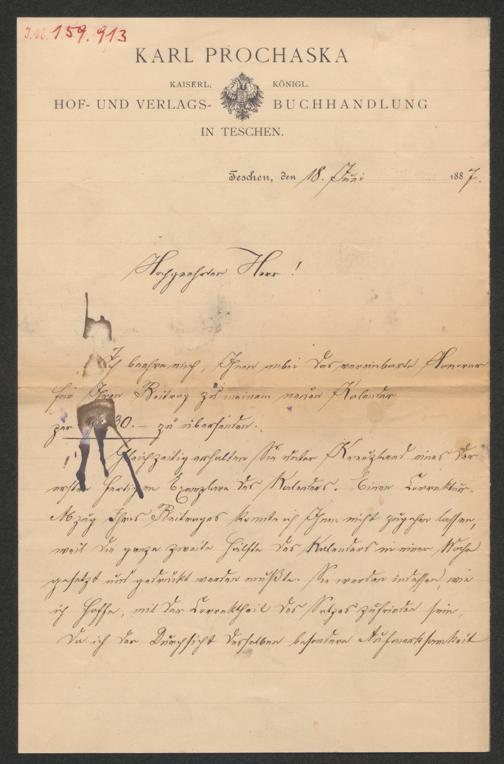 I.N. 159.913
KARL PROCHASKA
KAISERL. KÖNIGL.
HOF- UND VERLAGS- BUCHHANDLUNG
IN TESCHEN.
Teschen, den 18. Juni 1887.
Hochgeehrter Herr!
Ich beehre mich, Ihnen anbei das vereinbarte Honorar
für Ihren Beitrag zu meinem neuen Kalender
per 30.— zu übersenden.
Gleichzeitig erhalten Sie unter Kreuzband eines der
ersten fertigen Exemplare des Kalenders. Einen Correktur-
Abzug Ihres Beitrages konnte ich Ihnen nicht zugehen lassen,
weil die ganze zweite Hälfte des Kalenders in einer Woche
gesetzt und gedruckt werden mußte. Sie werden indessen, wie
ich hoffe, mit der Correktheit des Satzes zufrieden sein,
da ich der Durchsicht desselben besondere Aufmerksamkeit